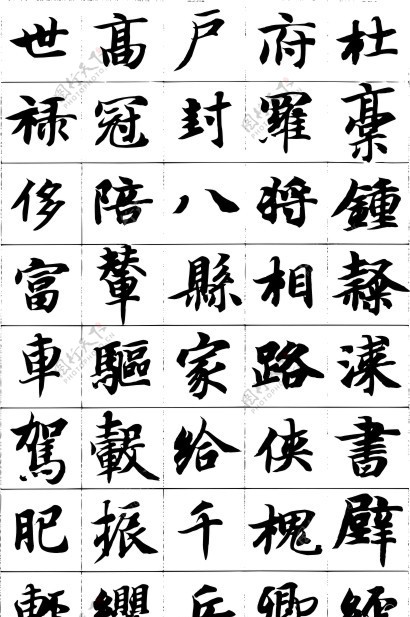 杜稾鍾隸漆書壁經
府羅將相路俠槐卿
戶封八縣家給千兵
高冠陪輦驅轂振纓
世祿侈富車駕肥輕